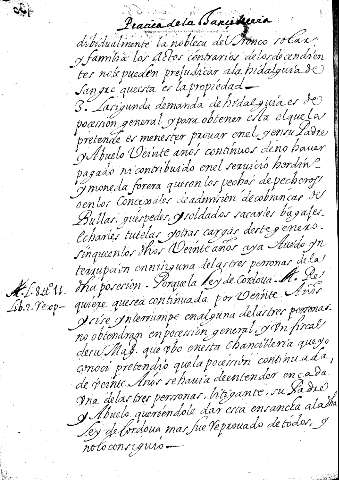 Practica de la Chancilleria
dibidualmente la nobleça del tronco solar
y familia los actos contrarios de los decendien
tes no le pueden prejudicar a la hidalguia de
sangre que esta es la propiedad.
3. La segunda demanda de hidalguia es de
posesion general, y para obtener esta el que la
pretende es menester provar en el y en su Padre
y Abuelo Veinte años continuos de no haver
pagado ni contribuido en el servicio hordin°
y moneda forera que son los pechos de pecheros
o en los Concejales de admision de cobranças de
Bullas, guespedes, y soldados sacarles bagajes
echarles tutelas y otras cargas deste genero.
sin que en los dhos Veinte años aya havido yn
terrupcion en ninguna de las tres personas de la
dha posesion. Porque la ley de Cordova
quiere que sea continuada por Veinte Años
y si se interrumpe en alguna de las tres personas.
no obtendran en posesion general, y Un fiscal
de su Mag. que ubo en esta Chancilleria que yo
conoci pretendio que la posesion continuada,
de veinte Años se havia de entender en cada
una de las tres personas, litigante, su Padre
y Abuelo queriendole dar esta ensancha a la dha
ley de Cordova mas fue reprovado de todos, y
no lo consiguio.
L. 8. tt. 11.
Lib. 2. Recop.